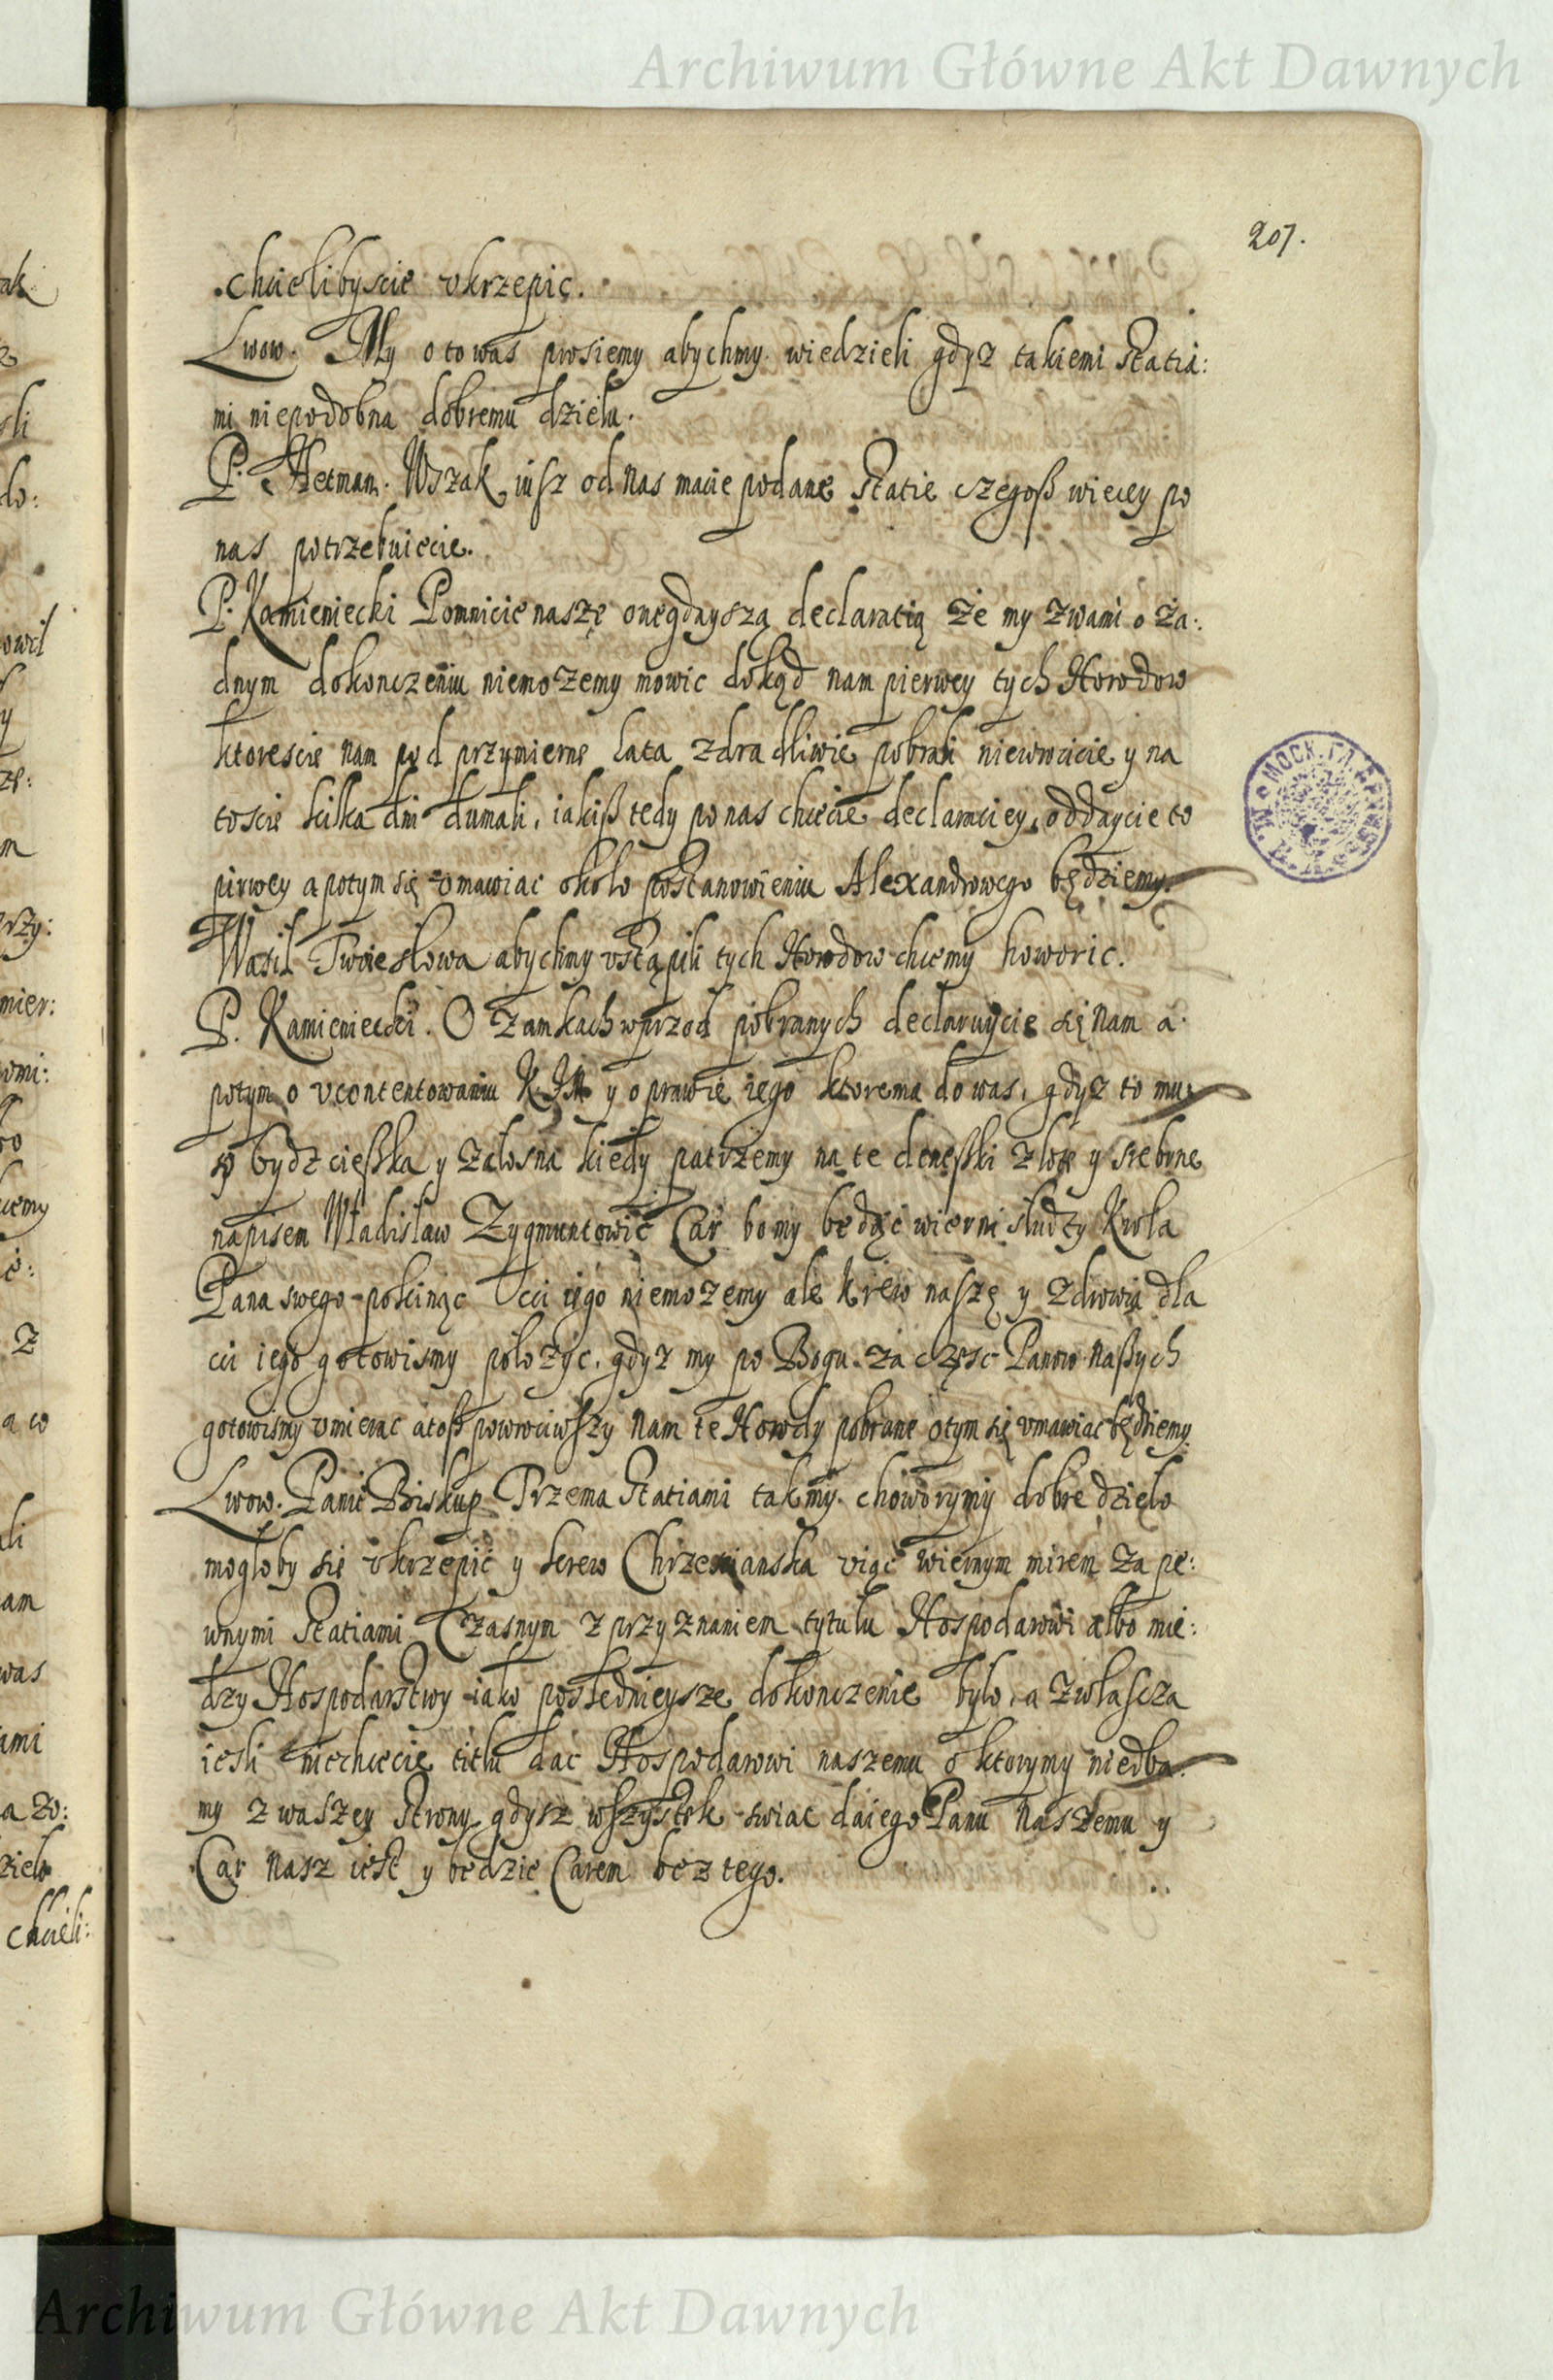 Archiwum Główne Akt Dawnych
207.
chcielibyscie vkrzepic.
Lwow. My o to was prosiemy abychmy wiedzieli gdyz takiemi Statia:
mi niepodobna dobremu dzielu.
P. Hetman. Wszak iusz od nas macie podane Statie czegoß wiecey po
nas potrzebuiecie.
P. Kamieniecki Pomnicie naszę onegdayszą declaratią że my z wami o ża:
dnym dokonczeniu niemozemy mowic dokąd nam pierwey tych Horodow
ktorescie nam pod przymierne lata zdradliwie pobrali niewrocicie y na
toscie kilka dni dumali, iakiß tedy po nas chcecie declaraciey, oddaycie to
pirwey a potym się vmawiac około postanowieniu Alexandrowego będziemy.
Wasil Twoie słowa abychmy vstąpili tych Horodow chcemy howoric.
P. Kamieniecki. O zamkach wprzod pobranych declaruycie się nam a
potym o vcontentowaniu K J M y o prawie iego ktore ma do was, gdyz to mu
si bydz cießka y załosna kiedy patrzemy na te deneßki złote y srebrne
napisem Władisław Zygmuntowic Car bo my będąc wierni słudzy Krola
Pana swego pokinąc cci iego niemozemy ale krew naszę y zdrowia dla
cci iego gotowismy położyc, gdyz my po Bogu za częsc Panow naßych
gotowismy vmierac atoß powrociwszy nam te Horody pobrane o tym się vmawiac będziemy.
Lwow. Panie Biskup Przema Statiami tak my choworymy dobre dzieło
mogłoby się vkrzepic y krew Chrzescianska viąc wiecznym mirem za pe:
wnymi Statiami Czasnym z przyznaniem tytułu Hospodarowi albo mie:
dzy Hospodarstwy iako poslednieysze dokonczenie było, a zwłascza
iesli niechcecie titłu dac Hospodarowi naszemu o ktorymy niedba:
my z waszey strony gdysz wszystek swiat daie go Panu naszemu y
Car nasz iest y bedzie Carem bez tego.
Archiwum Główne Akt Dawnych